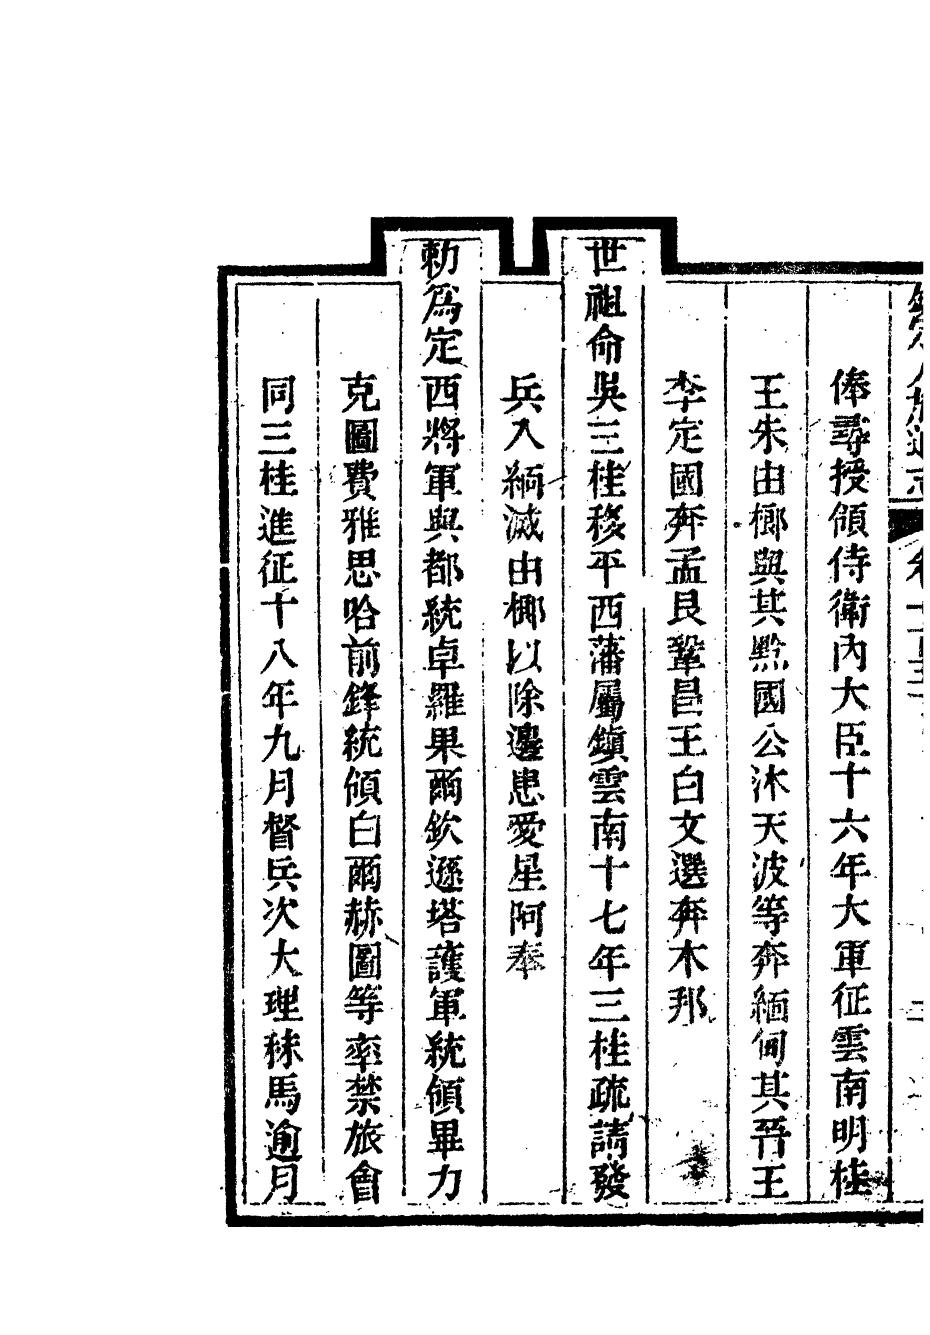 俸尋授領侍衛內大臣十六年大軍征雲南明桂
王朱由榔與其黔國公沐天波等奔緬甸其晉王
李定國奔孟艮鞏昌王白文選奔木邦
世祖命吳三桂移平西藩屬鎮雲南十七年三桂疏請發
兵入緬滅由榔以除邊患愛星阿奉
勅為定西將軍與都統卓羅果爾欽遜塔護軍統領畢力
克圖費雅思哈前鋒統領白爾赫圖等率禁旅會
同三桂進征十八年九月督兵次大理秣馬逾月